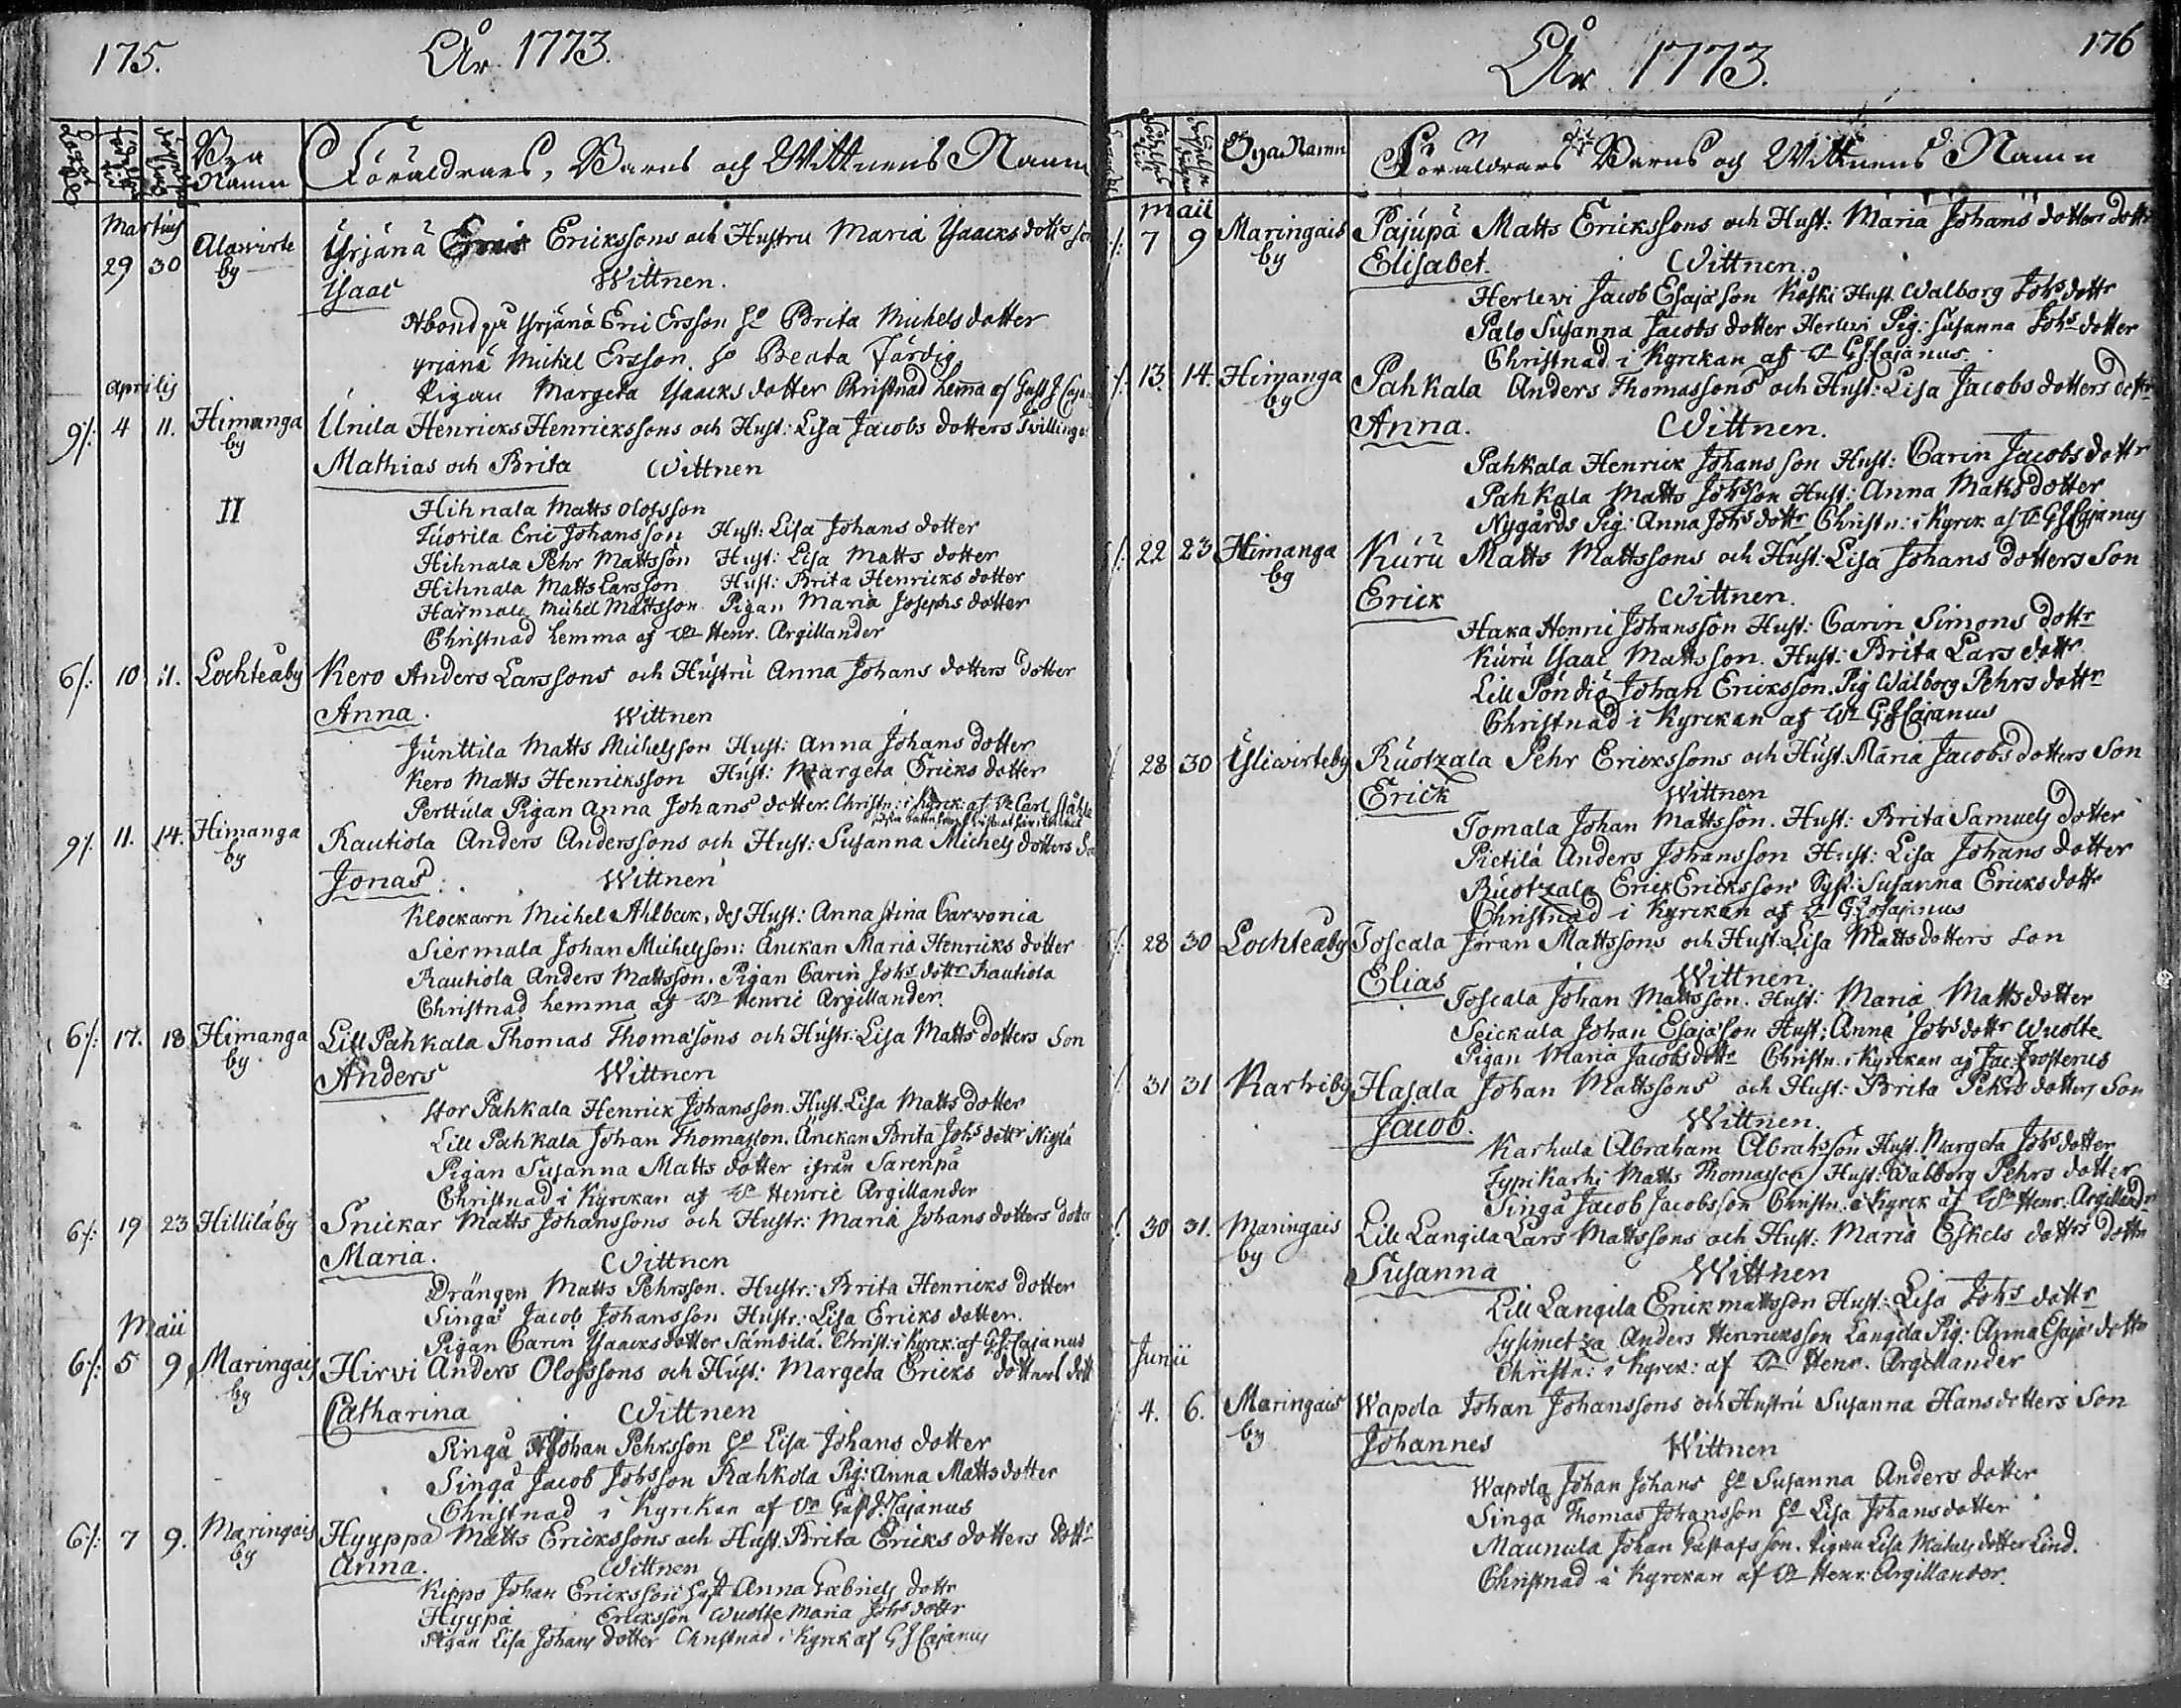 175.
År 1773.
Bya Namn
Föräldrars, Barns och Wittnens Namn
Martius
29 30 Alawirte by Yrjänä Ericksons och Hustru Maria Ysaacks dotters son
Ysaac
Wittnen.
Åbond på Yrjänä Eric Ersson Ho Brita Michels dotter
Yrjänä Michel Ersson. Ho Beata Färdig
Pigan Margeta Ysaacks dotter Christnad hemma af
Aprilis
9/: 4 11. Himanga by Unila Henricks Henrickssons och Hust: Lisa Jacobs dotters Tvillingar
Mathias och Brita Wittnen
II
Hihnala Matts Olofsson
Tuorila Eric Johansson Hust: Lisa Johans dotter
Hihnala Pehr Mattsson Hust: Lisa Matts dotter
Hihnala Matts Larsson Hust: Brita Henricks dotter
Harmala Michel Mattsson Pigan Maria Josephs dotter
Christnad hemma af Hr Henr. Argillander
6/: 10 11. Lochteåby Kero Anders Larssons och Hustru Anna Johans dotters dotter
Anna.
Wittnen
Junttila Matts Michelsson Hust: Anna Johans dotter
Kero Matts Henricksson Hust: Margeta Ericks dotter
Perttula Pigan Anna Johans dotter. Christn: i Kyrck: af Hr Carl
9/. 11. 14. Himanga by Rautiola Anders Anderssons och Hust: Susanna Michels dotters Son
Jonas.
Wittnen
Klockarn Michel Ahlbeck, des Hust: Anna Stina Carvonia
Siermala Johan Michelsson: Änckan Maria Henricks dotter
Rautiola Anders Mattsson. Pigan Carin Johs dottr Rautiola
Christnad hemma af Hr Henric Argillander.
6/: 17. 18 Himanga by. Lill Pahkala Thomas Thomasons och Hustr: Lisa Matts dotters Son
Anders
Wittnen
Stor Pahkala Henrick Johansson. Hust. Lisa Matts dotter
Lill Pahkala Johan Thomasson. Änckan Brita Johs dottr
Pigan Susanna Matts dotter ifrån Sarenpä
Christnad i Kyrckan af Hr Henric Argillander
6/: 19 23 Hilliläby Snickar Matts Johanssons och Hustr: Maria Johans dotters dotter
Maria.
Wittnen
Drängen Matts Pehrsson. Hustr: Brita Henricks dotter
Singå Jacob Johansson Hustr: Lisa Ericks dotter.
Pigan Carin Ysaacks dotter Sämbilä. Christ: i Kyrck: af GJ Cajanus
Maii
6/: 5 9 Maringais by Hirvi Anders Olofssons och Hust: Margeta Ericks dotters dott
Catharina
Wittnen
Singå Johan Pehrsson Ho Lisa Johans dotter
Singå Jacob Johsson Rahkola Pig: Anna Matts dotter
Christnad i Kyrckan af Hr Cajanus
6/: 7 9. Maringais by Hyyppä Matts Erickssons och Hust. Brita Ericks dotters dottr
Anna.
Wittnen
Kippo Johan Ericksson Hust Anna Gabriels dottr
Hyypä Ericksson Wuolte Maria Johs dottr
Pigan Lisa Johans dotter Christnad i Kyrck af GJ Cajanus
År 1773.
176
Bya Namn
Föräldrars Barns och Wittnens Namn
Maii
7 9 Maringais by Pajupä Matts Erickssons och Hust: Maria Johans dotters dottr
Elisabet.
Wittnen.
Herlevi Jacob Esajason Koski Hust. Walborg Johs dottr
Palo Susanna Jacobs dotter Herlevi Pig: Susanna Johs dotter
Christnad i Kyrckan af Hr GJ Cajanus.
13. 14. Himanga by Pahkala Anders Thomassons och Hust: Lisa Jacobs dotters dottr
Anna.
Wittnen.
Pahkala Henrick Johansson Hust: Carin Jacobs dottr
Pahkala Matts Johsson Hust: Anna Matts dotter
Nygårds Pig: Anna Johs dottr Christn: i Kyrck af Hr GJ Cajanus
22 23 Himanga by Kuru Matts Mattssons och Hust: Lisa Johans dotters Son
Erick
Wittnen.
Haka Henric Johansson Hust: Carin Simons dottr
Kuru Ysaac Mattsson. Hust: Brita Lars dottr
Lill Pöndiö Johan Ericksson. Pig Walborg Pehrs dottr
Christnad i Kyrckan af Hr GJ Cajanus
28 30 Yliwirteby Ruotzala Pehr Erickssons och Hust. Maria Jacobs dotters Son
Erick
Wittnen
Tomala Johan Mattsson. Hust: Brita Samuels dotter
Pietilä Anders Johansson Hust: Lisa Johans dotter
Ruotzala Erick Ericksson Syst: Susanna Ericks dottr
Christnad i Kyrckan af Hr GJ Cajanus
28 30 Lochteåby Toscala Jöran Mattssons och Hust: Lisa Matts dotters Son
Elias
Wittnen.
Toscala Johan Mattsson. Hust: Maria Matts dotter
Seickala Johan Esajason Hust: Anna Johs dottr Wuolte
Pigan Maria Jacobs dottr Christn. i Kyrckan af Jac: Frosterus
31 31 Karhiby Hasala Johan Mattssons och Hust: Brita Pehrs dotters Son
Jacob.
Wittnen.
Karhula Abraham Abrahsson Hust. Margeta Johs dotter
Typikarhi Matts Thomasson Hust: Walborg Pehrs dotter
Singå Jacob Jacobsson Christn. i Kyrck af Hr Henr. Argillandr
30 31. Maringais by Lill Langila Lars Mattssons och Hust: Maria Eskels dottrs dottr
Susanna
Wittnen
Lill Langila Erick Mattsson Hust: Lisa Johs dottr
Anders Henricksson Langila Pig: Anna Esajæ dottr
Christn: i Kyrck: af Hr Henr. Argillander
Junii
4. 6. Maringais by Wapola Johan Johanssons och Hustru Susanna Hans dotters Son
Johannes
Wittnen
Wapola Johan Johans Ho Susanna Anders dotter
Singå Thomas Johansson Ho Lisa Johans dotter
Maunula Johan Gustafsson. Pigan Lisa Michels dotter Lind.
Christnad i Kyrckan af Hr Henr: Argillander.